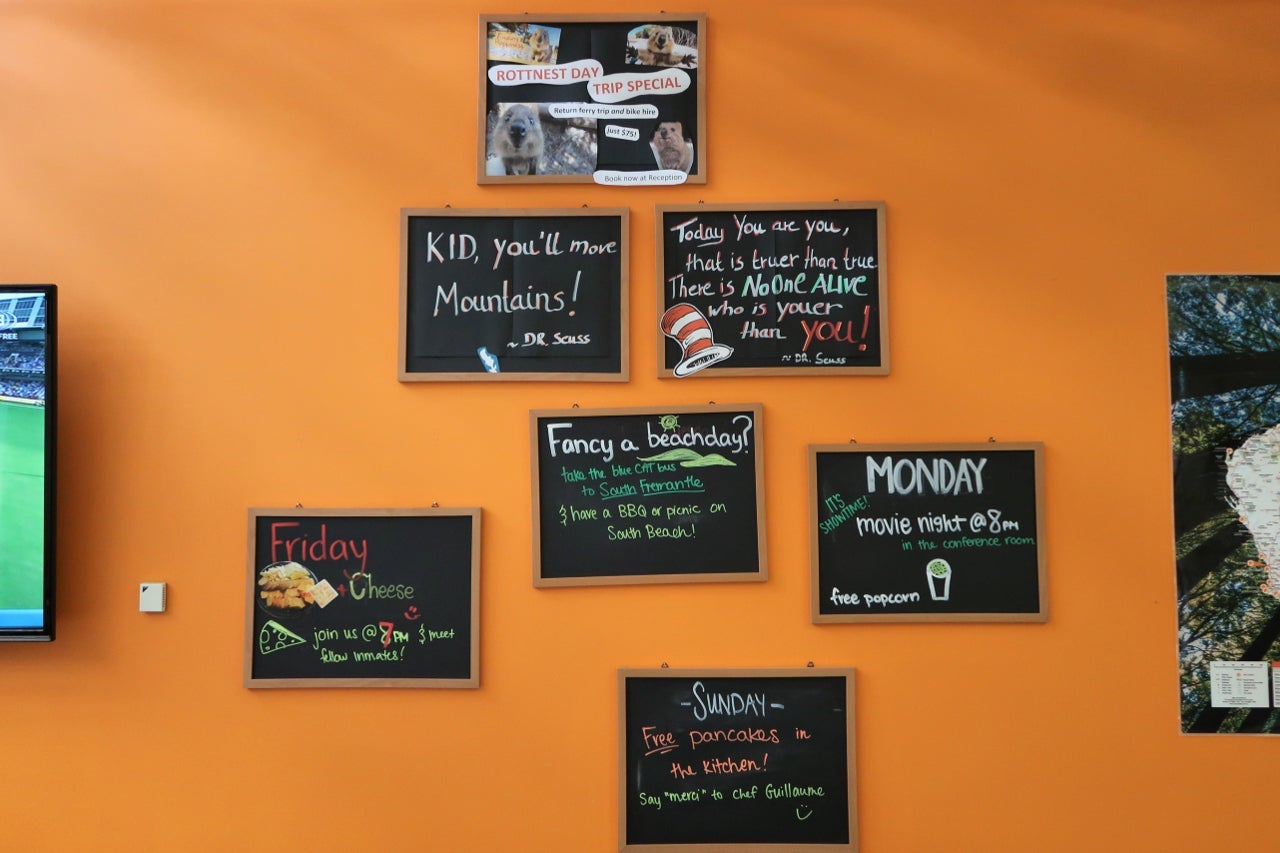 ROTTNEST DAY
TRIP SPECIAL
Return ferry trip and bike hire
just $75!
Book now at Reception
KID, you'll move
Mountains!
~ DR. Seuss
Today You are you,
that is truer than true
There is No One ALIVE
who is youer
than you!
~ DR. Seuss
Fancy a beachday?
take the blue CAT bus
to South Fremantle
& have a BBQ or picnic on
South Beach!
MONDAY
IT'S
SHOWTIME!
movie night @ 8PM
in the conference room
free popcorn
Friday
+ Cheese
join us @ 7PM & meet
fellow inmates!
-SUNDAY-
Free pancakes in
the kitchen!
Say "merci" to chef Guillaume
FREE